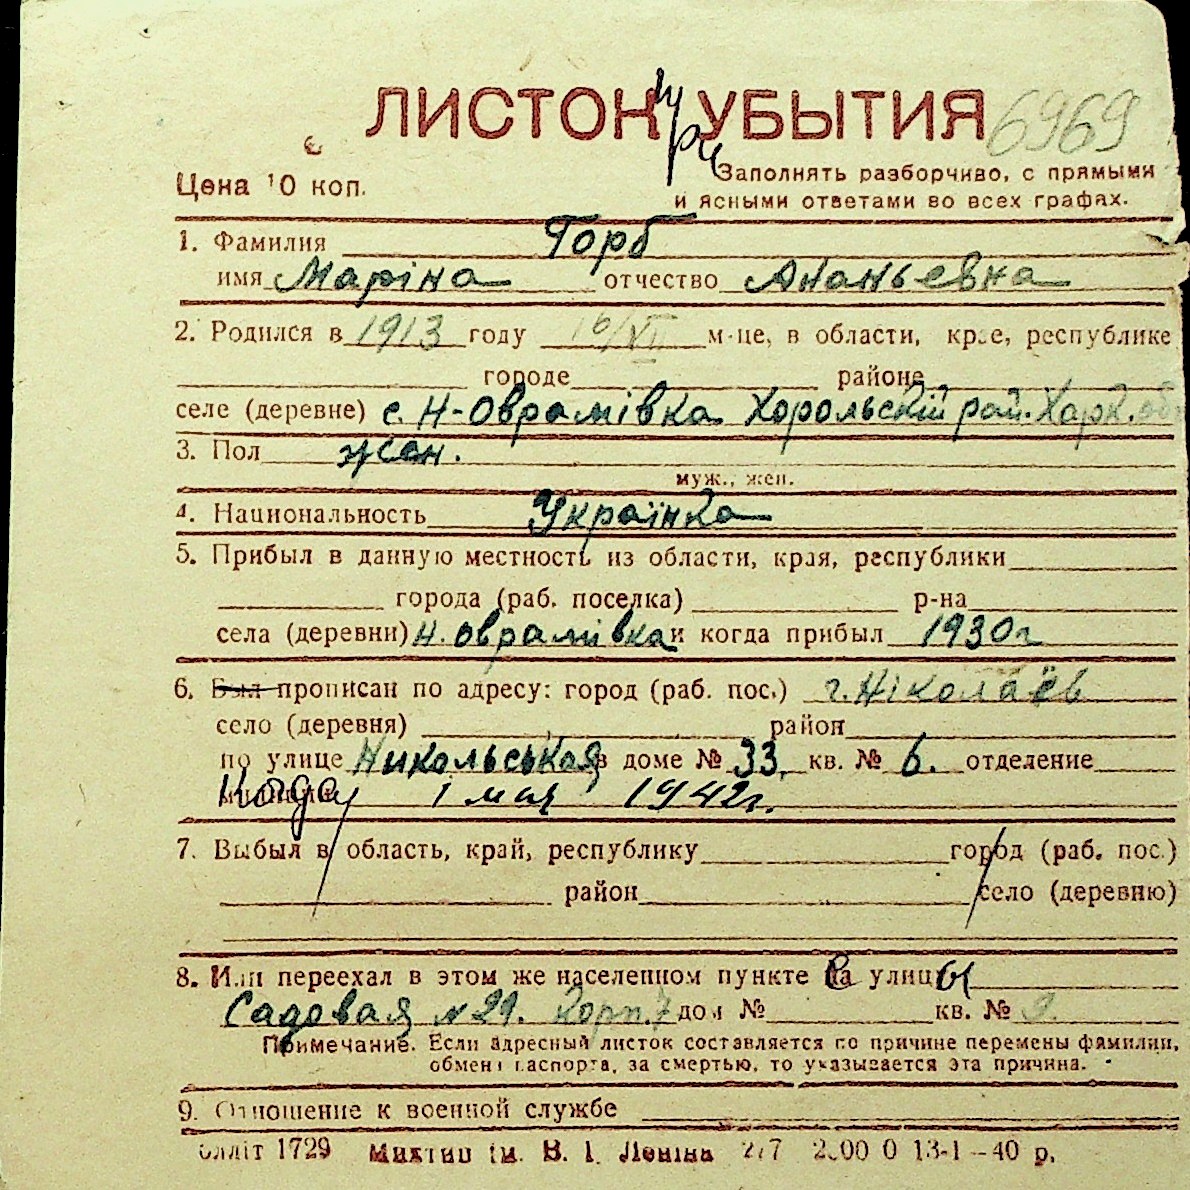 ЛИСТОК УБЫТИЯ 6969
при
Цена 10 коп.
Заполнять разборчиво, с прямыми
и ясными ответами во всех графах.
1. Фамилия Горб
имя Маріна отчество Ананьевна
2. Родился в 1913 году 16/VII м-це, в области, крае, республике
городе районе
селе (деревне) с. Н-Оврамівка Хорольскій рай. Харк. об
3. Пол жен.
муж., жен.
4. Национальность Українка
5. Прибыл в данную местность из области, края, республики
города (раб. поселка) р-на
села (деревни) Н. Оврамівка и когда прибыл 1930 г
6. Был прописан по адресу: город (раб. пос.) г. Ніколаёв
село (деревня) район
по улице Никольськая в доме № 33, кв. № 6. отделение
Когда 1 мая 1942 г.
7. Выбыл в область, край, республику город (раб. пос.)
район село (деревню)
8. Или переехал в этом же населенном пункте с улицы
Садовая № 29. корп. 7 дом № кв. № 9.
Примечание. Если адресный листок составляется по причине перемены фамилии,
обмена паспорта, за смертью, то указывается эта причина.
9. Отношение к военной службе
Олліт 1729 Миктип ім. В. І. Леніна 277 2000 0 13-1-40 р.